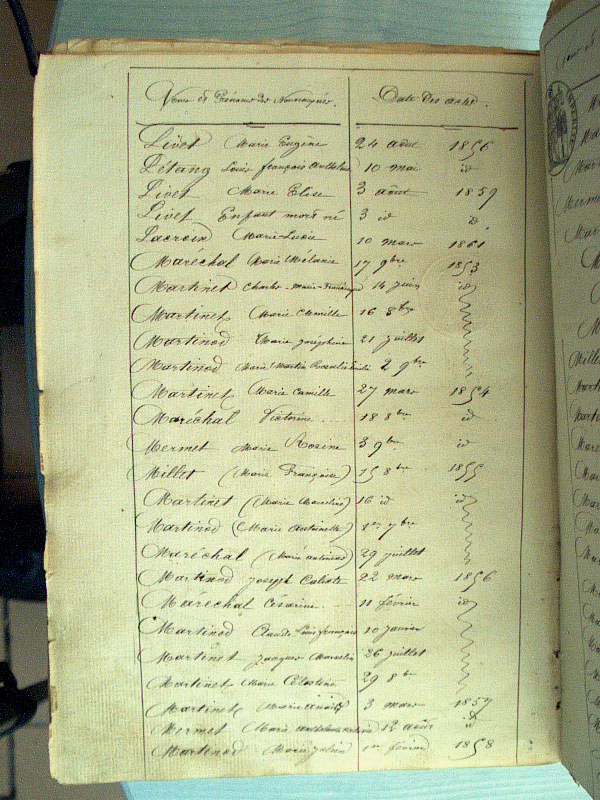 Noms et Prénoms des Nouveaux nés. Date des actes.
Livet Marie Eugène 24 août 1856
Létang Louis françois Anthelme 10 mai id
Livet Marie Elise 3 août 1859
Livet Enfant mort né 3 id id
Lacroix Marie Lucie 10 mars 1861
Maréchal Marie Mélanie 17 9bre 1853
Martinet Charles-Marie-François 14 juin id
Martinet Marie Camille 16 8bre
Martinod Marie joséphine 21 juillet
Martinod Marie Martin Rosalie 2 9bre
Martinet Marie Camille 27 mars 1854
Maréchal Victorine 18 8bre id
Mermet Marie Rosine 3 9bre id
Millet (Marie Françoise) 15 8bre 1855
Martinet (Marie Marcelin) 16 id id
Martinod (Marie Antoinette) 1er 7bre
Maréchal (Marie) 29 juillet
Martinod joseph Calixte 22 mars 1856
Maréchal Césarine 11 février id
Martinod Claude Louis françois 10 janvier
Martinet jacques Marcelin 26 juillet
Martinet Marie Célestine 29 8bre
Martinet Marie 3 mars 1857
Mermet Marie 12 août id
Martinod Marie julien 1er février 1858